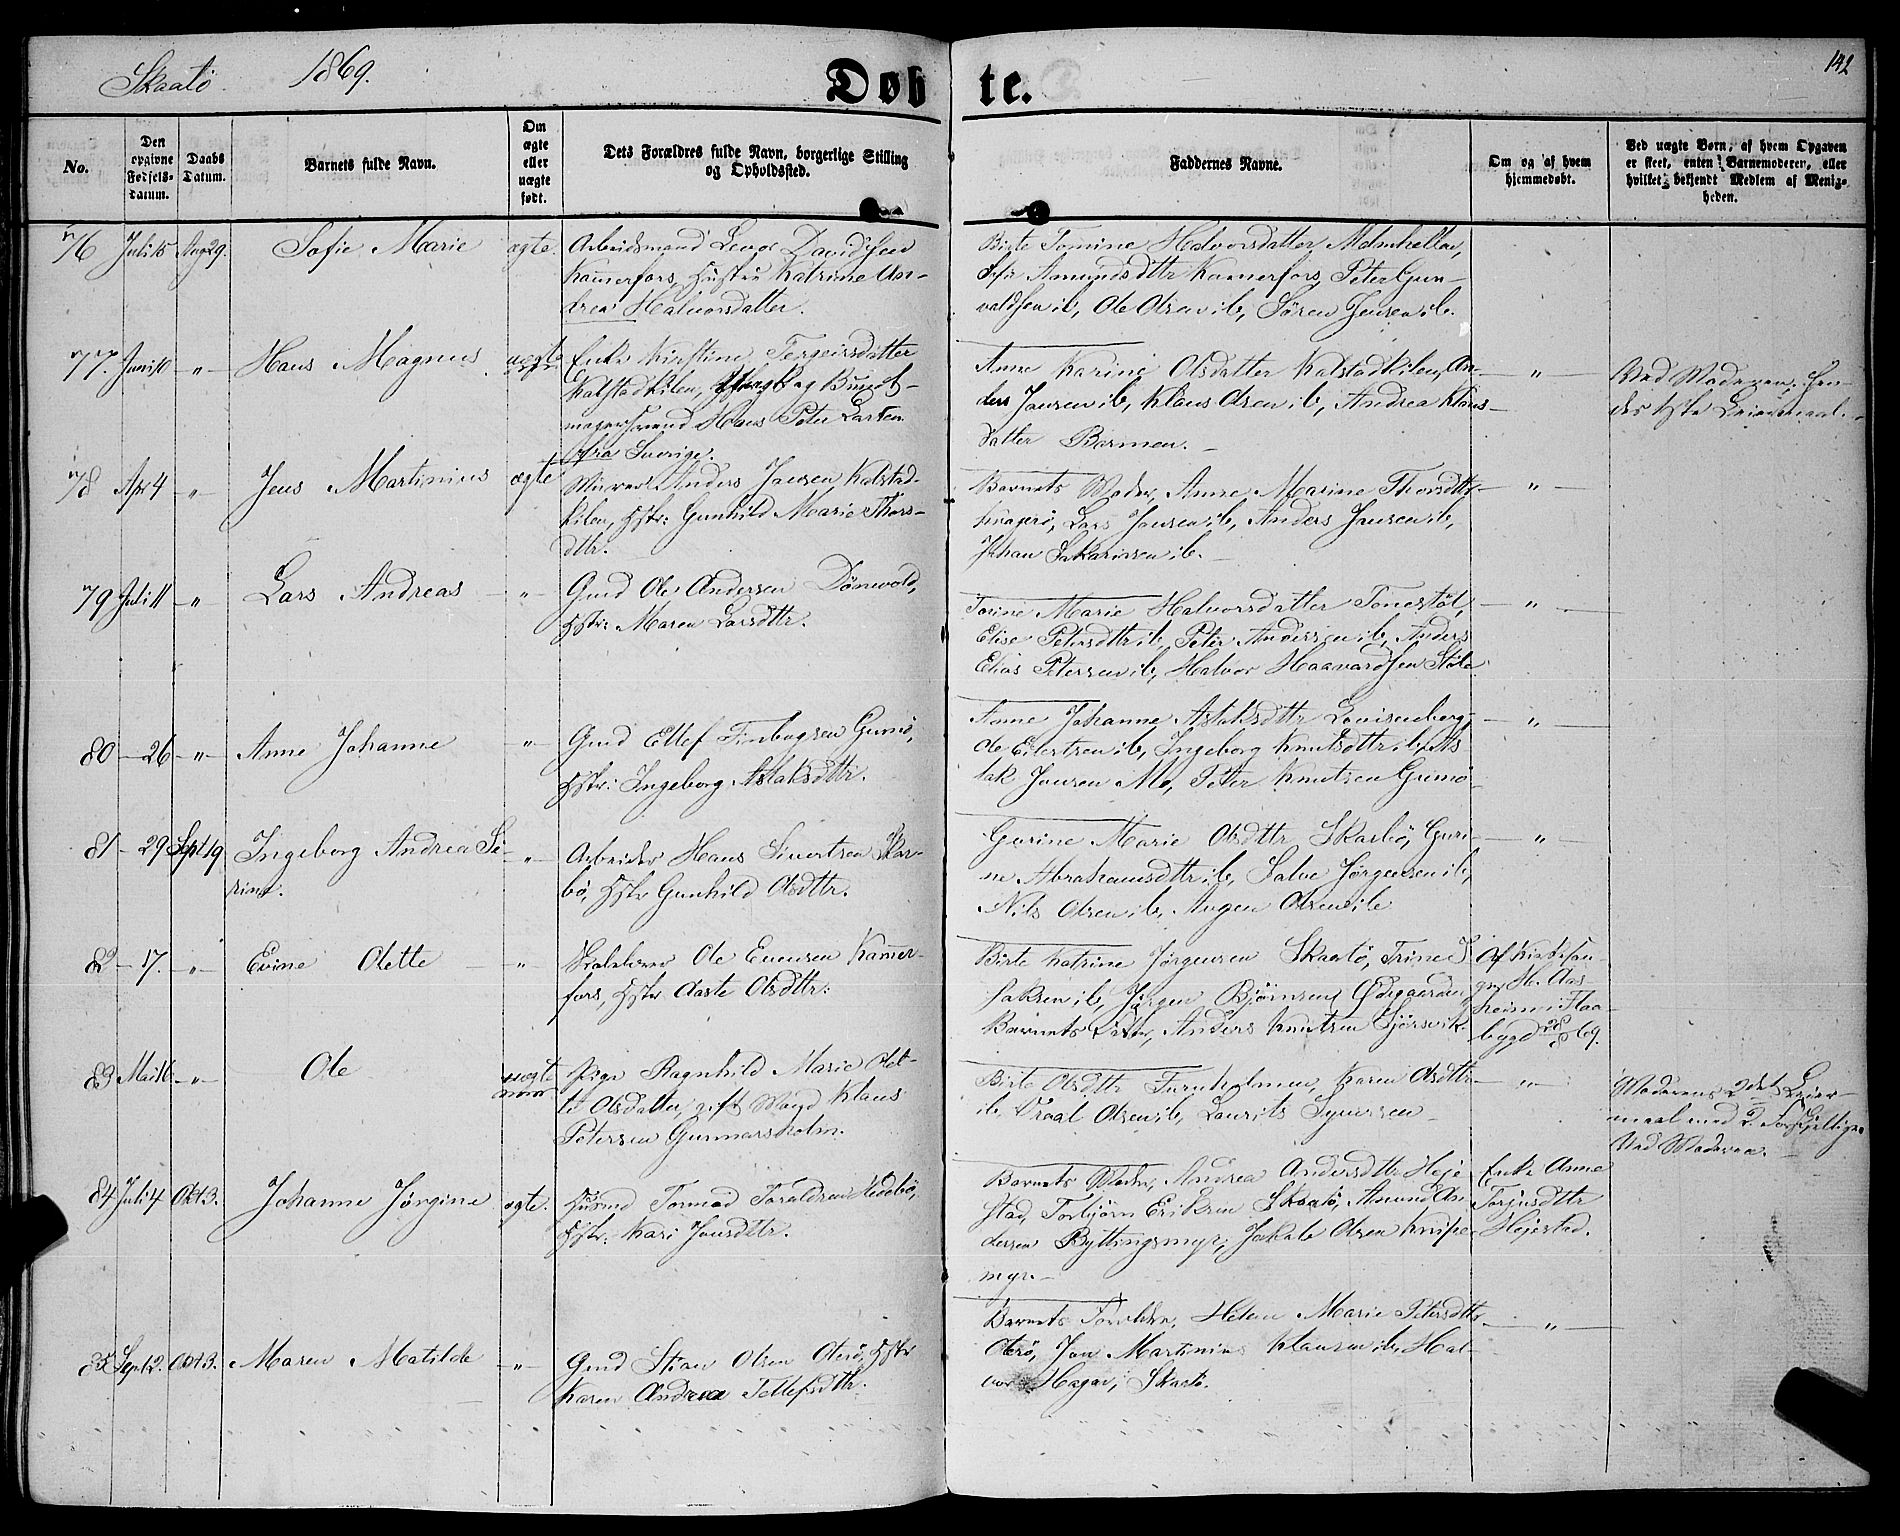 Skaatø. 1869.
Døbte.
142
No.
Den opgivne Fødsels-datum.
Daabs Datum.
Barnets fulde Navn.
Om ægte eller uægte født.
Dets Forældres fulde Navn, borgerlige Stilling og Opholdssted.
Faddernes Navne.
Om og af hvem hjemmedøbt.
Ved uægte Børn, af hvem Opgaven er skeet, enten Barnemoderen, eller hvilket bekjendt Medlem af Menigheden.
76 Juli 15 Aug 29. Sofie Marie ægte. Arbeidsmand Davidsen
Kammerfors, Hustru Katrine An-
drea Halvorsdatter.
Birte Tomine Halvorsdatter
Amundsdttr Kammerfors, Peter Gun-
valdsen ib, Ole Olsen ib, Søren Jensen ib.
77. Juni 10 " Hans Magnus uægte Enke Kirstine Tergeirsdatter
Kalstadkilen, og
Hans Peter Larsen
fra Sverige.
Anne Karine Olsdatter Kalstadkilen, An-
ders Jansen ib, Klaus Olsen ib, Andrea Klaus-
datter Barmen.
"
Ved Moderen. Hen-
des 1ste Leiermaal.
78 Apr 4 " Jens Martinius ægte Anders Jansen Kalstad-
kilen, Hstr: Gunhild Marie Thors-
dttr.
Barnets Moder, Anne Marine Thorsdttr
Kragerø, Lars Jansen ib, Anders Jansen ib,
Johan Sakariasen ib.
"
79 Juli 11 " Lars Andreas " Gmd Ole Andersen Dønevold,
Hstr: Maren Larsdttr.
Torine Marie Halvorsdatter Tonestøl,
Elise Petersdttr ib, Peter Andersen ib, Anders
Elias Petersen ib, Halvor Haavardsen Støle
"
80 26 " Anne Johanne " Gmd Ellef Finbogsen Gumø,
Hstr: Ingeborg Aslaksdttr.
Anne Johanne Aslaksdttr Louisenberg,
Ole Eilertsen ib, Ingeborg Knutsdttr ib, As
lak Jansen Mo, Peter Knutsen Gumø
"
81 29 Sept 19 Ingeborg Andrea Se-
rine.
" Arbeider Hans Sivertsen Skar-
bø, Hstr Gunhild Olsdttr.
Gurine Marie Olsdttr Skarbø, Guri-
ne Abrahamsdttr ib, Salve Jørgensen ib,
Nils Olsen ib, Olsen ib
"
82 17. " Evine Olette " Skolelærer Ole Evensen Kammer-
fors, Hstr Aaste Olsdttr.
Birte Katrine Jørgensen Skaatø, Trine I
saksen ib, Jørgen Bjørnsen Ødegaarden
Barnets Fader, Anders Knutsen
Af Kirkesan-
ger H. Aas-
heim i Flaa-
bygd 28/8 69.
83 Mai 16 " Ole uægte Pige Ragnhild Marie Olet-
te Olsdatter, gift Mand Klaus
Petersen Gunmarsholm.
Birte Olsdttr Furuholmen, Karen Olsdttr
ib. Traal Olsen ib, Laurits Synesen
"
Moderens 2det Leier-
maal med 2 Forskjellige.
Ved Moderen.
84 Juli 4 Okt 3. Johanne Jørgine ægte. Husmd Tormod Taraldsen Hedebø,
Hstr: Kari Jonsdttr.
Barnets Moder, Andrea Andersdttr Heje
stad, Torbjørn Eriksen Skaatø, Amund An
dersen Byttingsmyr, Jakob Olsen Knipe
myr.
Enke Anne
Torjusdttr
Hejestad.
85 Sept 12. Okt 3. Maren Matilde " Gmd Stian Olsen Oterø, Hstr
Karen Andrea Tellefsdttr.
Barnets Forældre, Helene Marie Petersdttr
Oterø, Jan Martinius Klausen ib, Hal-
vor Hagar, Skaatø.
"